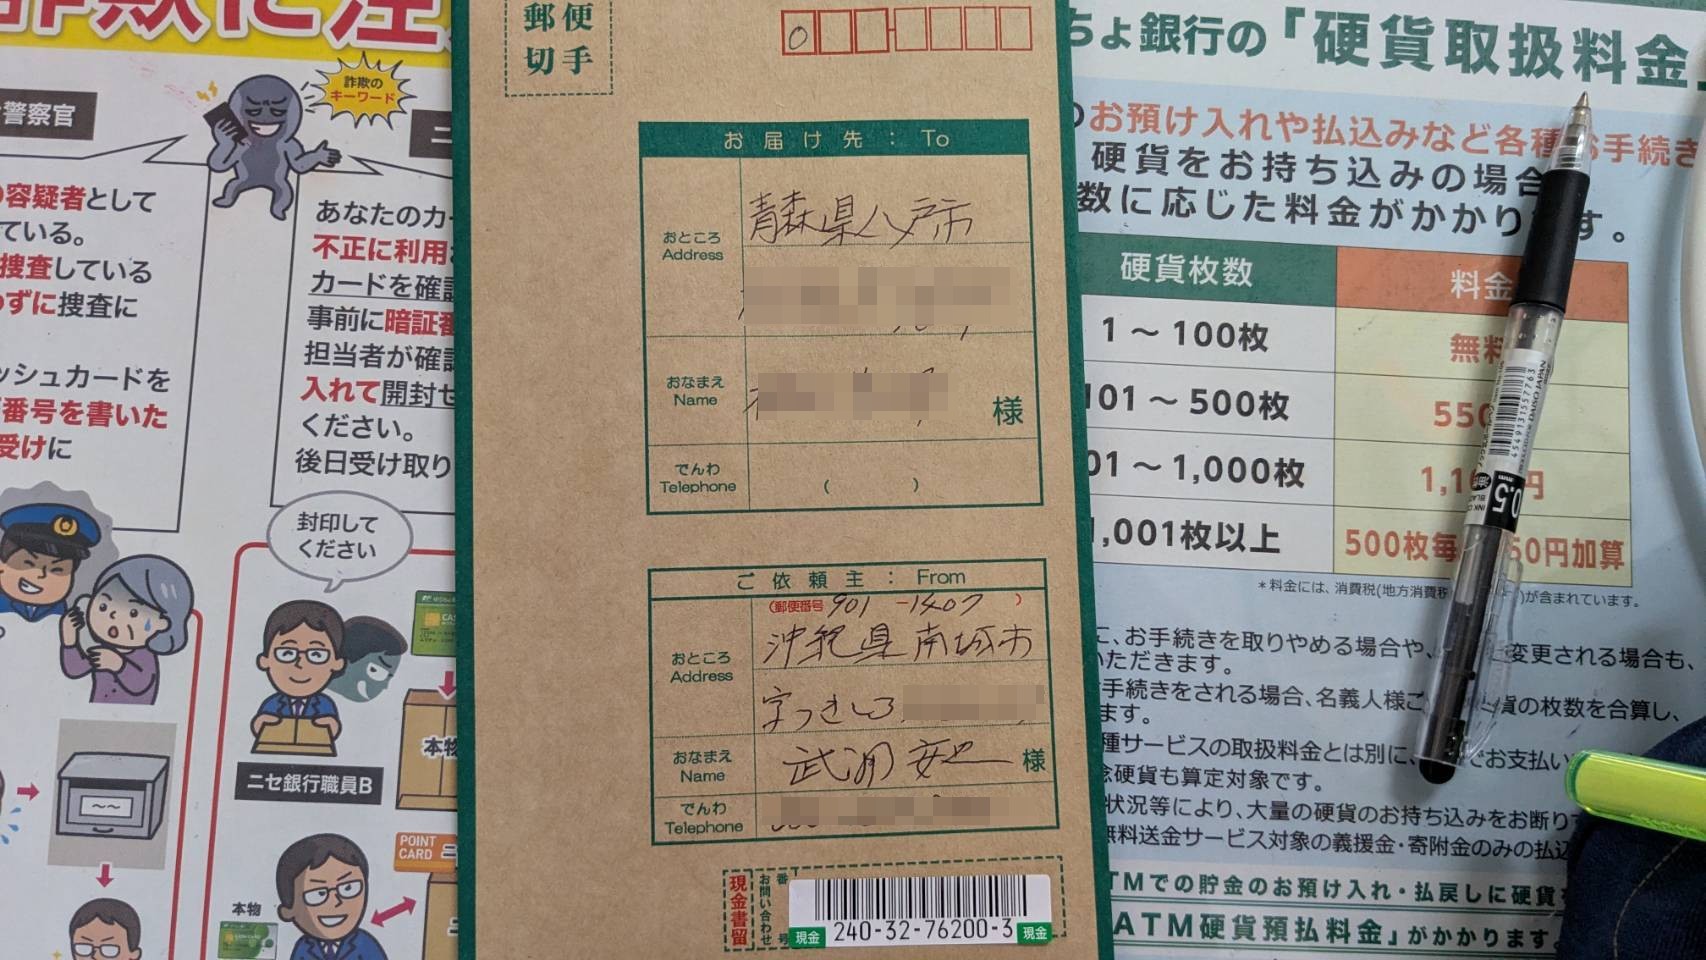 詐欺に注
詐欺の
キーワード
警察官
の容疑者として
ている。
捜査している
わずに捜査に
ッシュカードを
番号を書いた
受けに
あなたのカー
不正に利用
カードを確認
事前に暗証番
担当者が確認
入れて開封せ
ください。
後日受け取り
封印して
ください
本物
ニセ銀行職員B
POINT
CARD
本物
郵便
切手
0
お届け先：To
おところ
Address
青森県八戸市
おなまえ
Name
様
でんわ
Telephone
(　　)
ご依頼主：From
(郵便番号 901-1407)
おところ
Address
沖縄県南城市
字つきしろ
おなまえ
Name
様
でんわ
Telephone
現金書留
お問い合わせ
番号
現金
240-32-76200-3
現金
ちょ銀行の「硬貨取扱料金」
のお預け入れや払込みなど各種お手続き
硬貨をお持ち込みの場合
数に応じた料金がかかります。
硬貨枚数 料金
1～100枚 無料
101～500枚 550
01～1,000枚 1,1 円
1,001枚以上 500枚毎 50円加算
＊料金には、消費税(地方消費税 )が含まれています。
に、お手続きを取りやめる場合や、 変更される場合も、
いただきます。
手続きをされる場合、名義人様ご 貨の枚数を合算し、
ます。
種サービスの取扱料金とは別に、 でお支払い
念硬貨も算定対象です。
状況等により、大量の硬貨のお持ち込みをお断り
無料送金サービス対象の義援金・寄附金のみの払込
TMでの貯金のお預け入れ・払戻しに硬貨
ATM硬貨預払料金」がかかります。
0.5
mm
4549131557763
DAISO JAPAN